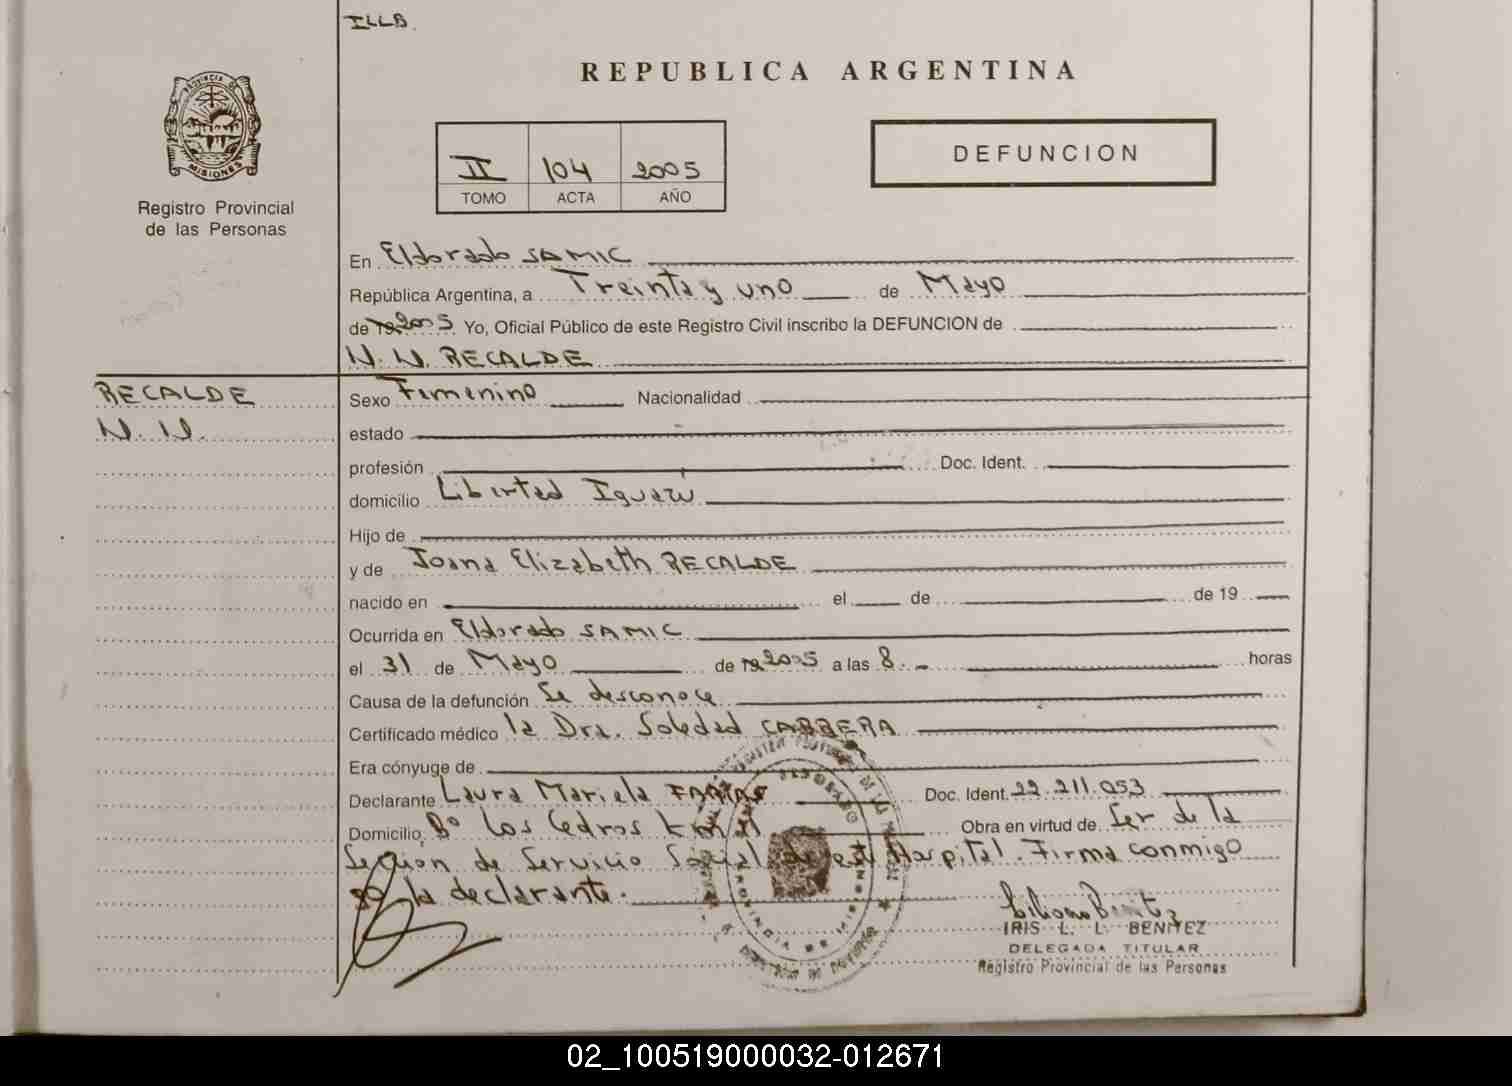 ILLB.
REPUBLICA ARGENTINA
PROVINCIA DE
MISIONES
Registro Provincial
de las Personas
II 104 2005
TOMO ACTA AÑO
DEFUNCION
En Eldorado SAMIC
República Argentina, a Treinta y uno de Mayo
de 19 2005 Yo, Oficial Público de este Registro Civil inscribo la DEFUNCION de
N. N. RECALDE
RECALDE
N. N.
Sexo Femenino Nacionalidad
estado
profesión Doc. Ident.
domicilio Libertad Iguazú
Hijo de
y de Joana Elizabeth RECALDE
nacido en el de de 19
Ocurrida en Eldorado SAMIC
el 31 de Mayo de 19 2005 a las 8.- horas
Causa de la defunción Se desconoce
Certificado médico la Dra. Soledad CABRERA
Era cónyuge de
Declarante Laura Mariela FARIAS Doc. Ident. 22.211.053
Domicilio Bº Los Cedros Km Obra en virtud de Ser de la
Sección de Servicio Social de este Hospital. Firma conmigo
la declarante.
PROVINCIA DE MISIONES
ELDORADO
IRIS L. L. BENITEZ
DELEGADA TITULAR
Registro Provincial de las Personas
02_100519000032-012671